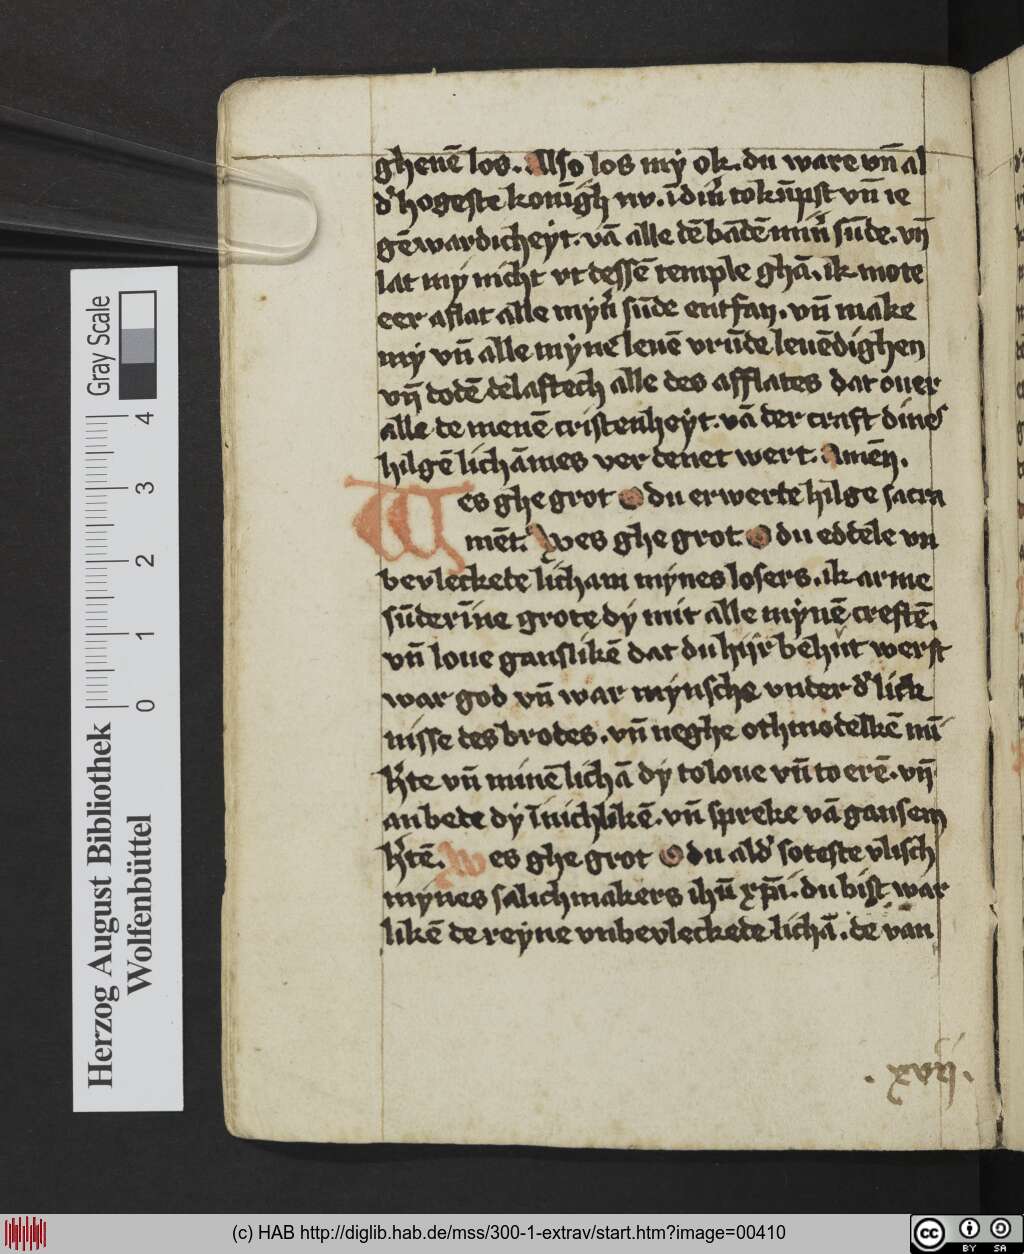 ghenē los. Also los my ok. du ware vn̄ al
d' hogeste konīgh nv. ī din' tokūpst vn̄ ie
gēwardicheyt. vā alle dē bādē min' sūde. vn̄
lat my nicht vt dessē temple ghā. ik mote
eer aflat alle myn' sūde entfan. vn̄ make
my vn̄ alle myne leuē vrūde leuēdighen
vn̄ dodē dēlaftech alle des afflates dat ouer
alle de menē cristenheyt. vā der craft dines
hilgē lichāmes ver denet wert. Amēn.
Wes ghe grot O du erwerte hilge sacra
mēt. Wes ghe grot O du eddele vn
bevleckete licham mynes losers. ik arme
sūderīne grote dy mit alle mynē creftē.
vn̄ loue ganslikē dat du hijr behut werst
war god vn̄ war mynsche vnder d' lick
nisse des brodes. vn̄ neghe othmodelkē mī
h'te vn̄ minē lichā dy to loue vn̄ to erē. vn̄
an bede dy īnichlikē. vn̄ spreke vā gansem
h'tē. Wes ghe grot O du ald' soteste vlisch
mynes salichmakers ihū xp̄i. du bist war
likē de reyne vnbevleckede lichā. de van
. xvij .
Gray Scale
4 3 2 1 0
Herzog August Bibliothek
Wolfenbüttel
(c) HAB http://diglib.hab.de/mss/300-1-extrav/start.htm?image=00410
cc BY SA